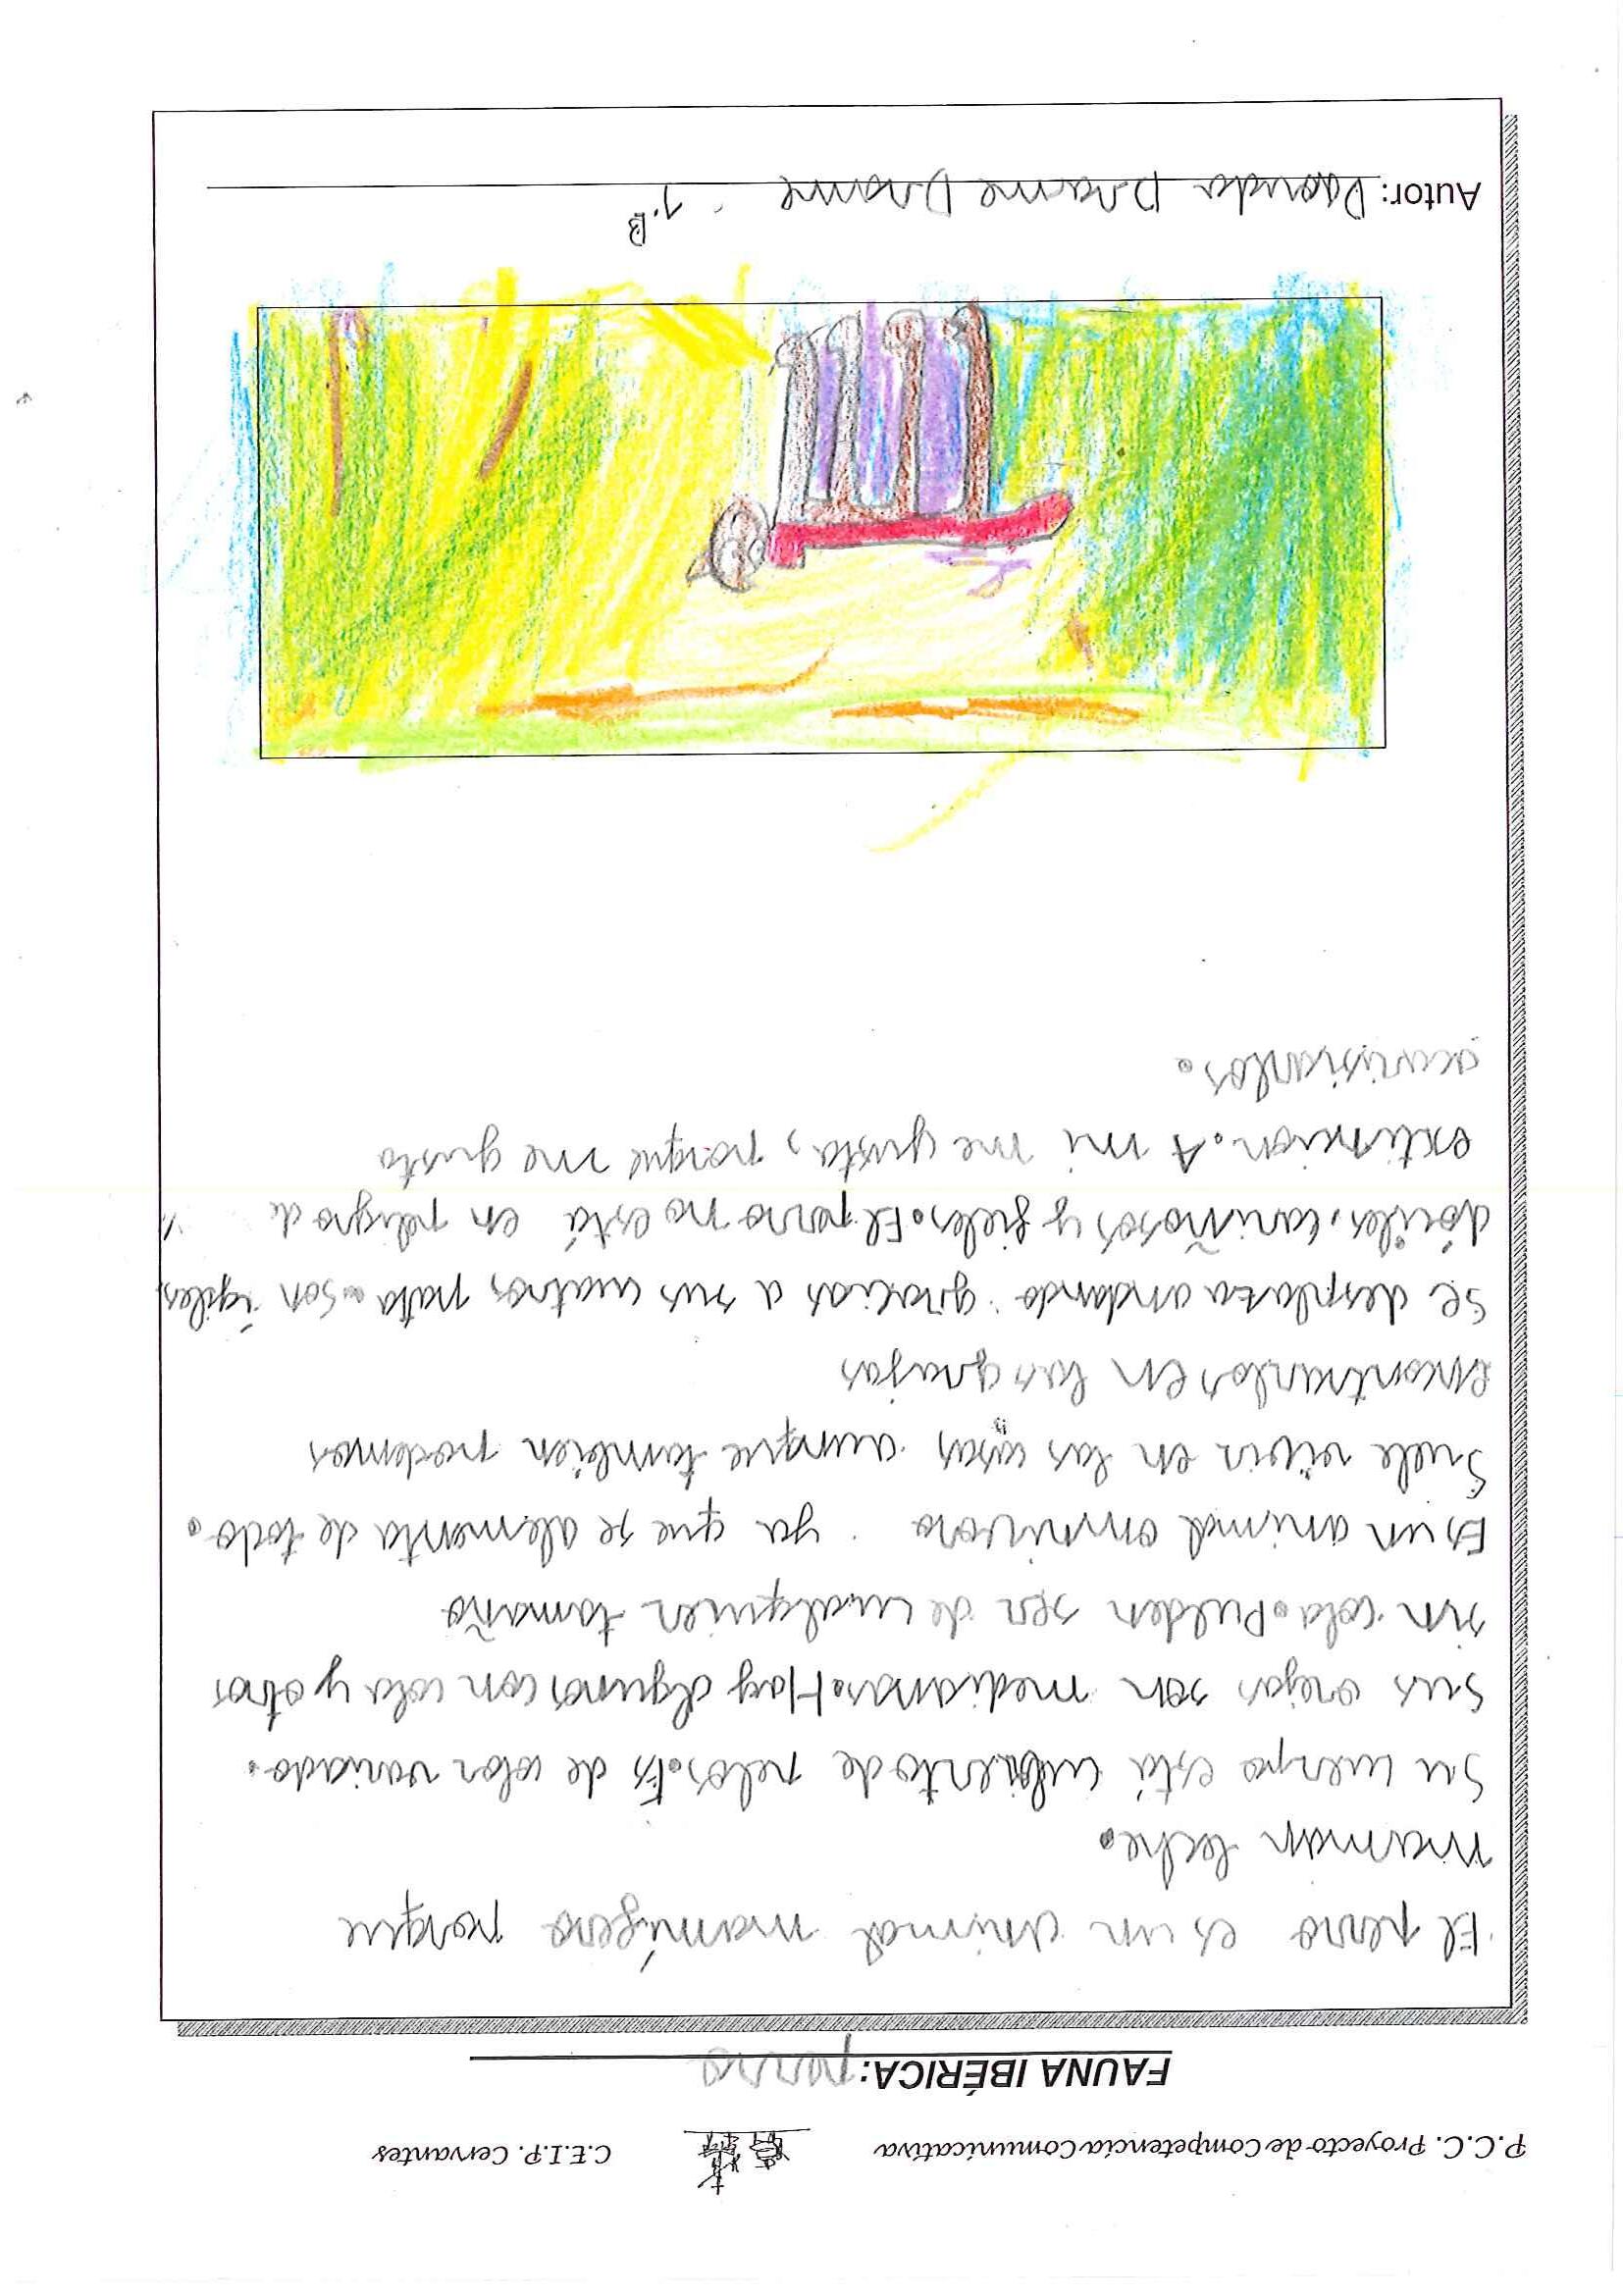 P.C.C. Proyecto de Competencia Comunicativa C.E.I.P. Cervantes
FAUNA IBÉRICA: perro
El perro es un animal mamífero porque
maman leche.
Su cuerpo está cubierto de pelos. Es de color variado.
Sus orejas son medianas. Hay algunos con cola y otros
sin cola. Pueden ser de cualquier tamaño
Es un animal omnívoro ya que se alementa de todo.
Suele vivir en las casas aunque tambien podemos
encontrarlos en las granjas
Se desplaza andando gracias a sus cuatros pata. Son ágiles,
dóciles, cariñosos y fieles. El perro no está en peligro de
extincion. A mi me gusta, porque me gusta
acarisiarlos.
Autor: Daouda Drame Drame 1.B